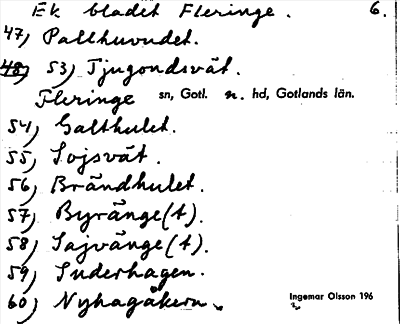 Ek bladet Fleringe. 6.
47) Pallhuvudet.
48) 53) Tjugondsvät.
Fleringe sn, Gotl. n. hd, Gotlands län.
54) Galthulet.
55) Sojsvät.
56) Brändhulet.
57) Byränge(t).
58) Sajvänge(t).
59) Suderhagen.
60) Nyhagåkern.
Ingemar Olsson 196